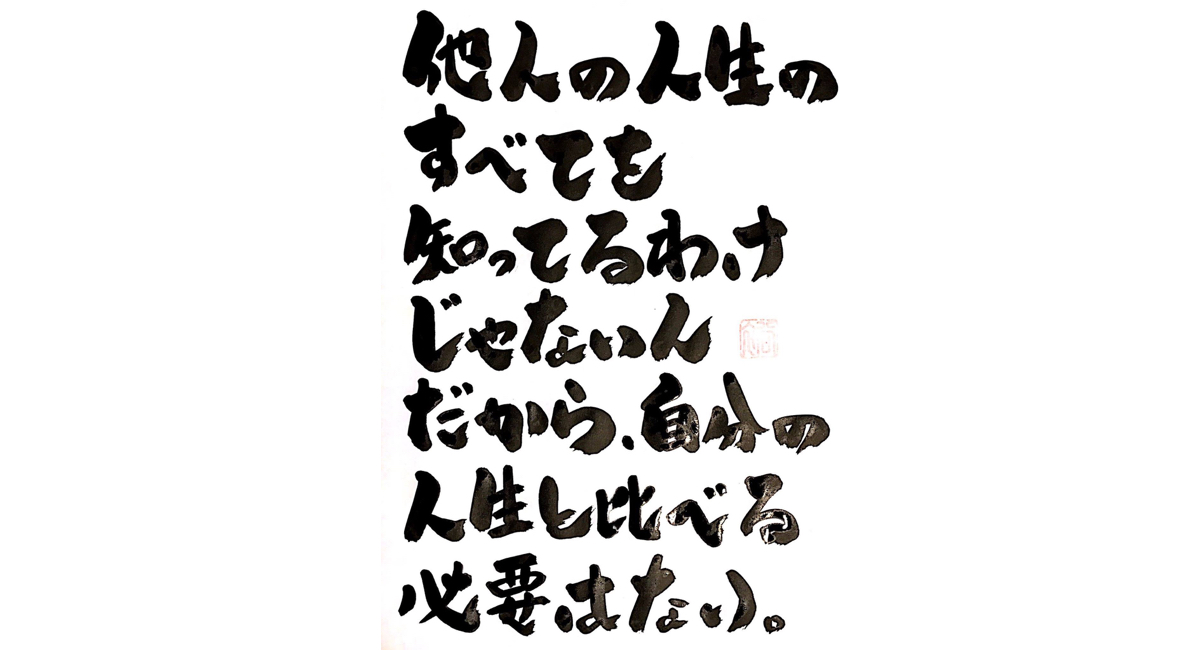 他人の人生の
すべてを
知ってるわけ
じゃないん
だから、自分の
人生と比べる
必要はない。